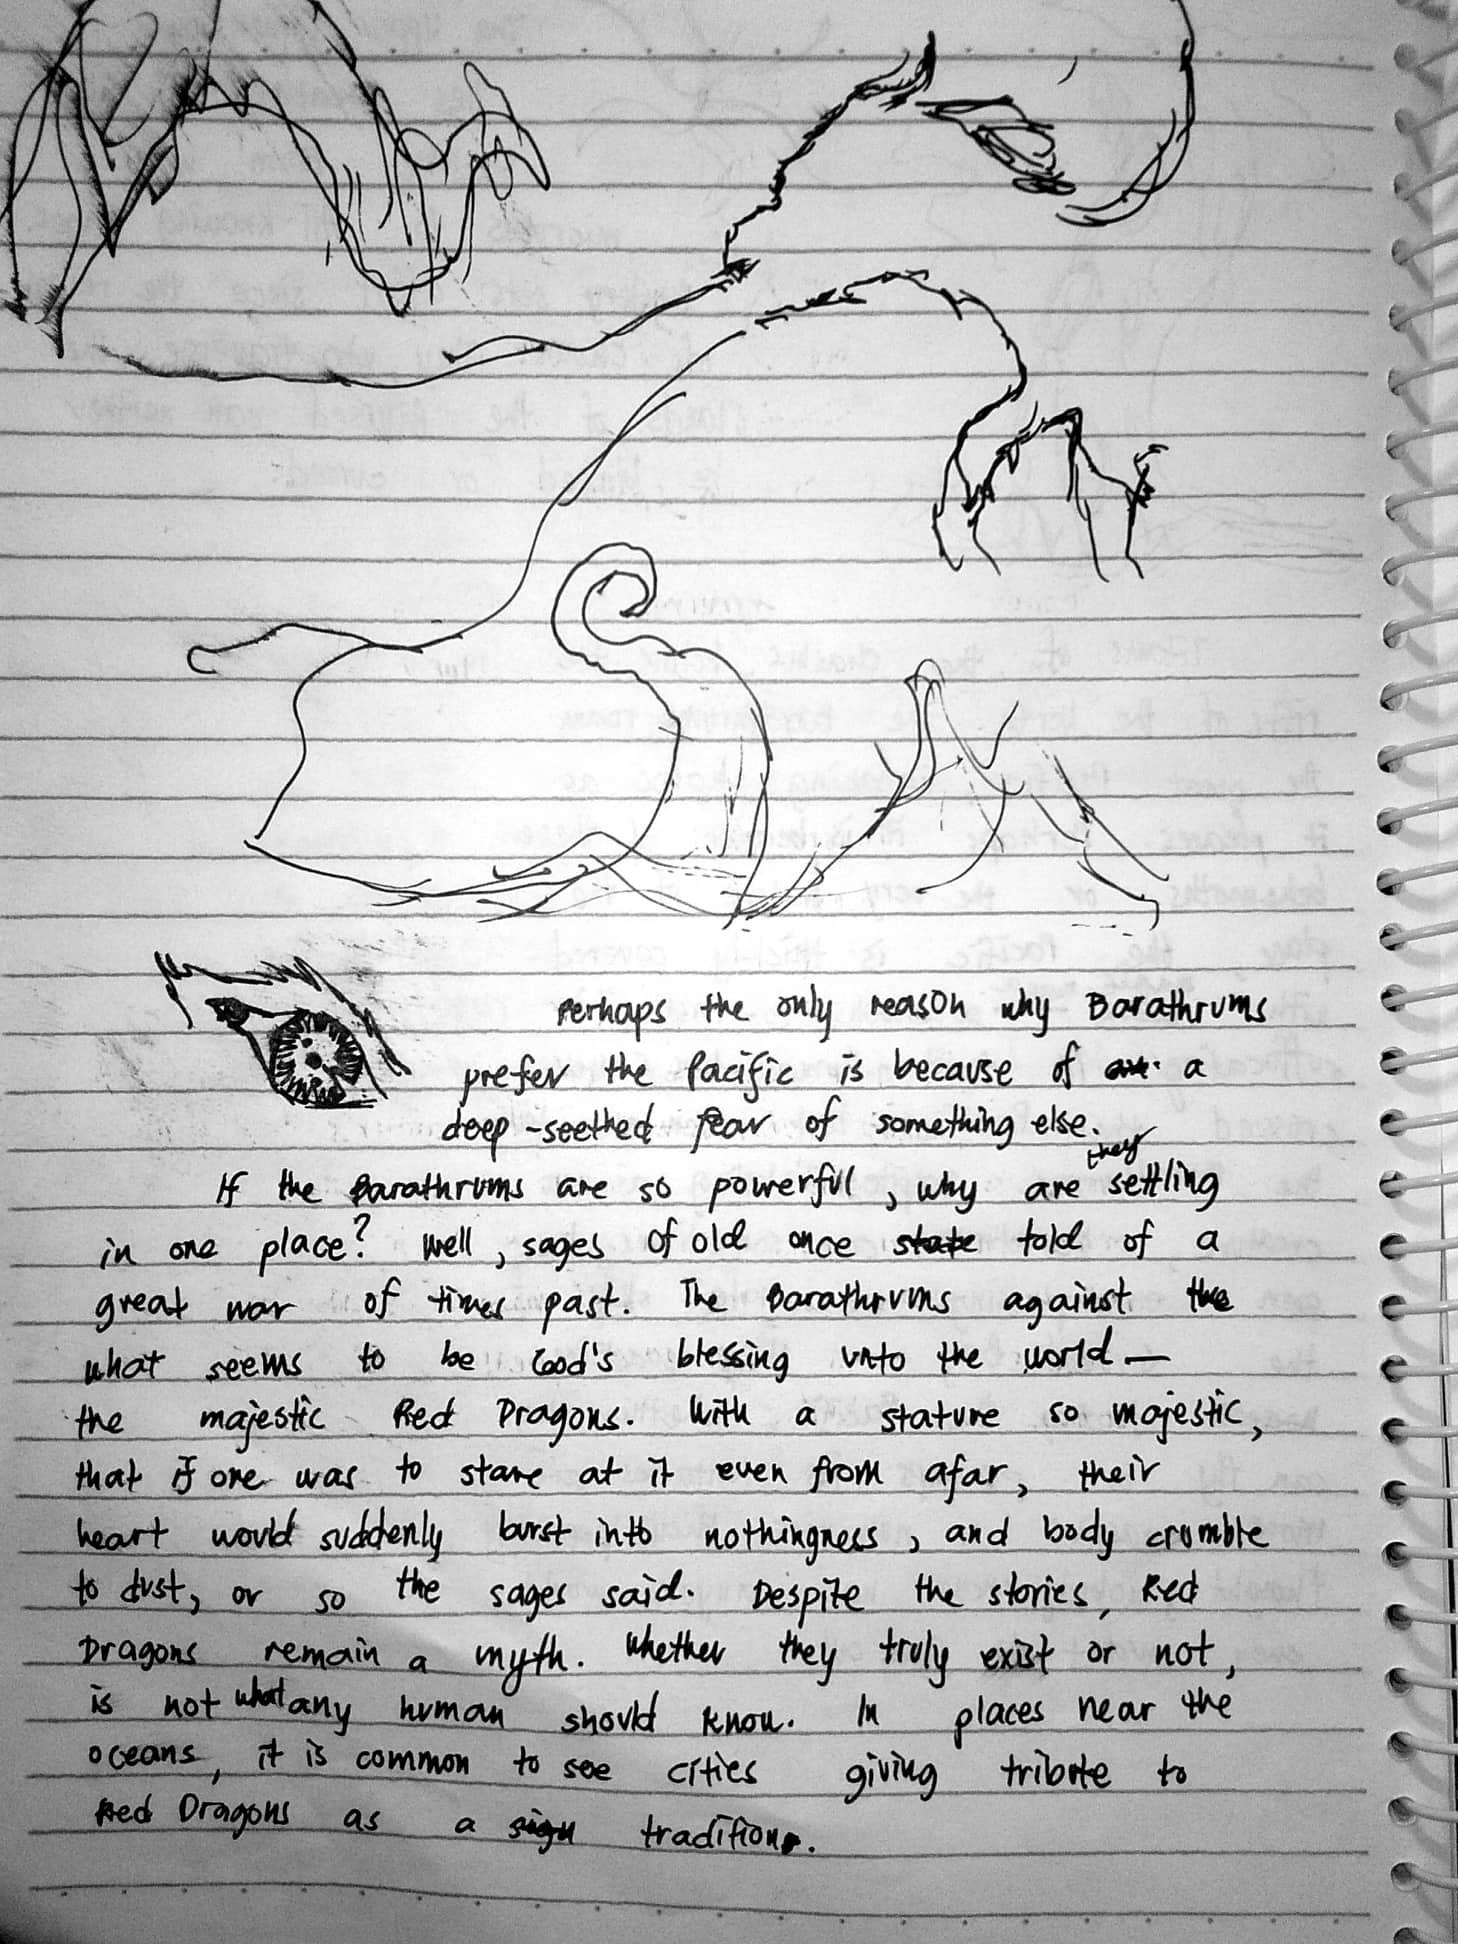 Perhaps the only reason why Barathrums
prefer the Pacific is because of a
deep-seethed fear of something else.
If the Barathrums are so powerful, why are they settling
in one place? Well, sages of old once state told of a
great war of times past. The Barathrums against the
what seems to be God's blessing unto the world —
the majestic Red Dragons. With a stature so majestic,
that if one was to stare at it even from afar, their
heart would suddenly burst into nothingness, and body crumble
to dust, or so the sages said. Despite the stories, Red
Dragons remain a myth. Whether they truly exist or not,
is not what any human should know. In places near the
oceans, it is common to see cities giving tribute to
Red Dragons as a sign tradition.